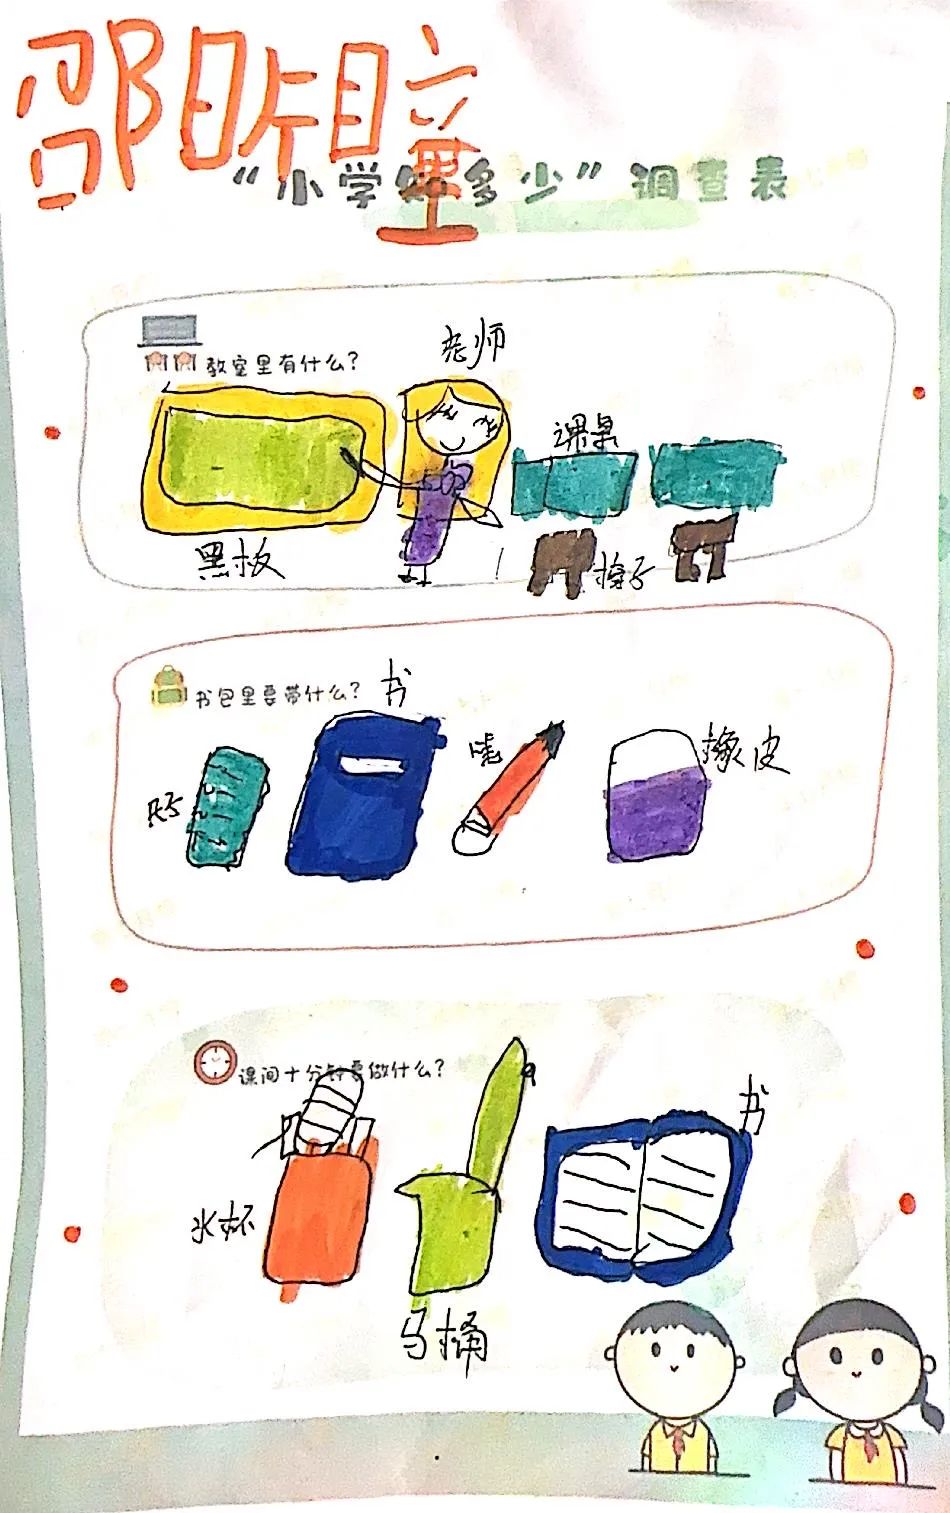 邵昕瞳
“小学知多少”调查表
教室里有什么？
老师
课桌
黑板
椅子
书包里要带什么？
书
尺子
笔
橡皮
课间十分钟要做什么？
书
水杯
马桶